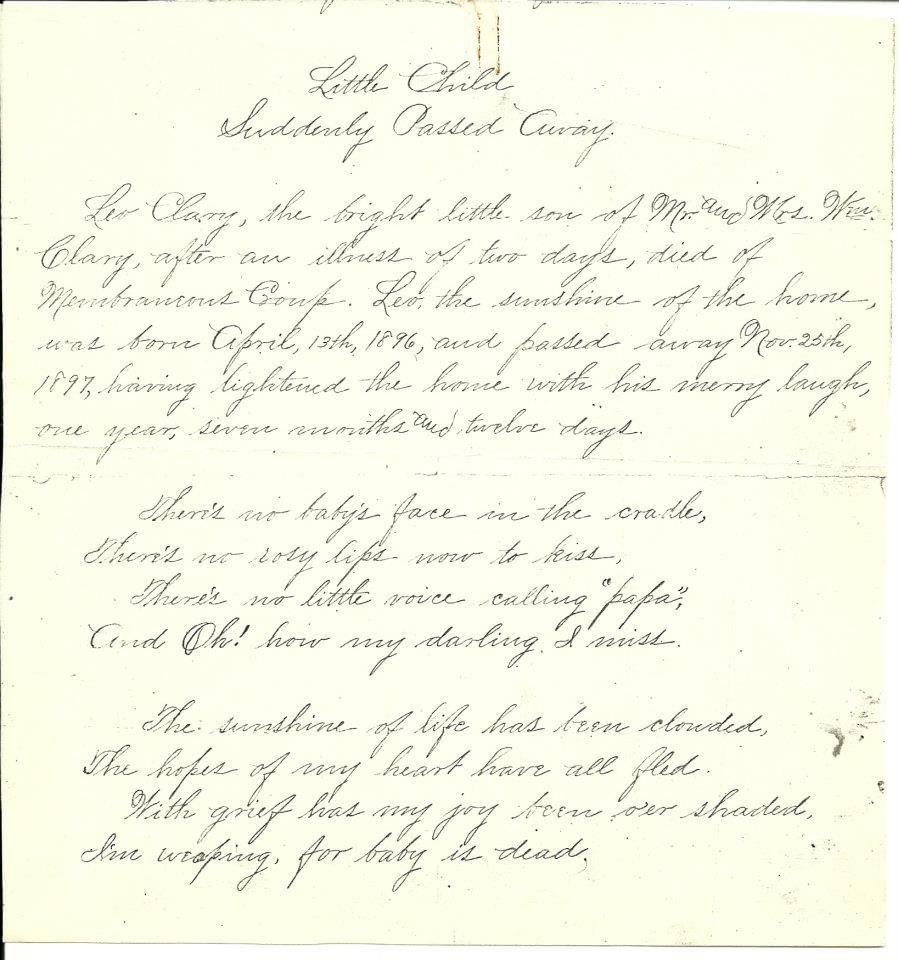 Little Child
Suddenly Passed Away.
Leo Clary, the bright little son of Mr. and Mrs. Wm.
Clary, after an illness of two days, died of
Membraneous Croup. Leo, the sunshine of the home,
was born April, 13th, 1896, and passed away Nov. 25th,
1897, having lightened the home with his merry laugh,
one year, seven months and twelve days.
There's no baby's face in the cradle,
There's no rosy lips now to kiss,
There's no little voice calling "papa",
And Oh! how my darling I miss.
The sunshine of life has been clouded,
The hopes of my heart have all fled.
With grief has my joy been o'er shaded,
I'm weeping, for baby is dead.